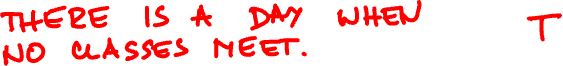 THERE IS A DAY WHEN T
NO CLASSES MEET.